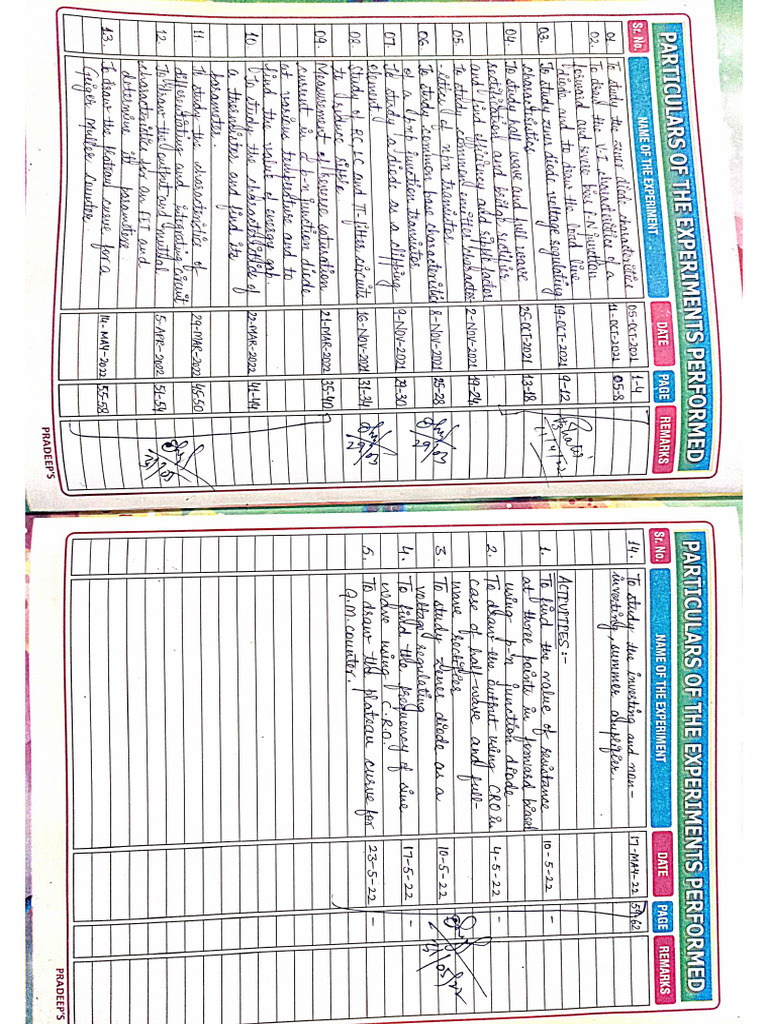 PARTICULARS OF THE EXPERIMENTS PERFORMED
Sr. No. NAME OF THE EXPERIMENT DATE PAGE REMARKS
01. To study the zener diode characteristics 05-OCT-2021 1-4
02. To draw the V-I characteristics of a 11-OCT-2021 05-8
forward and reverse bias P-N junction
diode and to draw the load line
03. To study zener diode voltage regulating 19-OCT-2021 9-12
characteristics
04. To study half wave and full wave 25-OCT-2021 13-18
rectification and bridge rectifier
and find efficiency and ripple factor
05. To study common emitter charactor 2-NOV-2021 19-24
-istics of npn transistor
06. To study common base characteristics 8-NOV-2021 25-28
of a pnp junction transistor
07. To study a diode as a clipping 9-NOV-2021 29-30
element
08. Study of RC, LC and π-filter circuits 16-NOV-2021 31-34
to reduce ripple
09. Measurement of reverse saturation 21-MAR-2022 35-40
current in a p-n junction diode
at various temperature and to
find the value of energy gap.
10. To study the characteristics of 22-MAR-2022 41-44
a thermistor and find its
parameter.
11. To study the characteristics of 29-MAR-2022 45-50
differentiating and integrating circuit
12. To draw the output and mutual 5-APR-2022 51-54
characteristics for an FET and
determine its parameters.
13. To draw the plateau curve for a 14-MAY-2022 55-58
Geiger Muller Counter.
29/03
29/03
PRADEEP'S
PARTICULARS OF THE EXPERIMENTS PERFORMED
Sr. No. NAME OF THE EXPERIMENT DATE PAGE REMARKS
14. To study the inverting and non- 17-MAY-22 59-62
inverting, summer amplifier.
ACTIVITIES :-
1. To find the value of resistance 10-5-22 -
at three points in forward biased
using p-n junction diode.
2. To draw the output using CRO in 4-5-22 -
case of half-wave and full-
wave rectifier
3. To study zener diode as a 10-5-22 -
voltage regulating
4. To find the frequency of sine 17-5-22 -
wave using C.R.O.
5. To draw the plateau curve for 23-5-22 -
G.M. counter.
PRADEEP'S